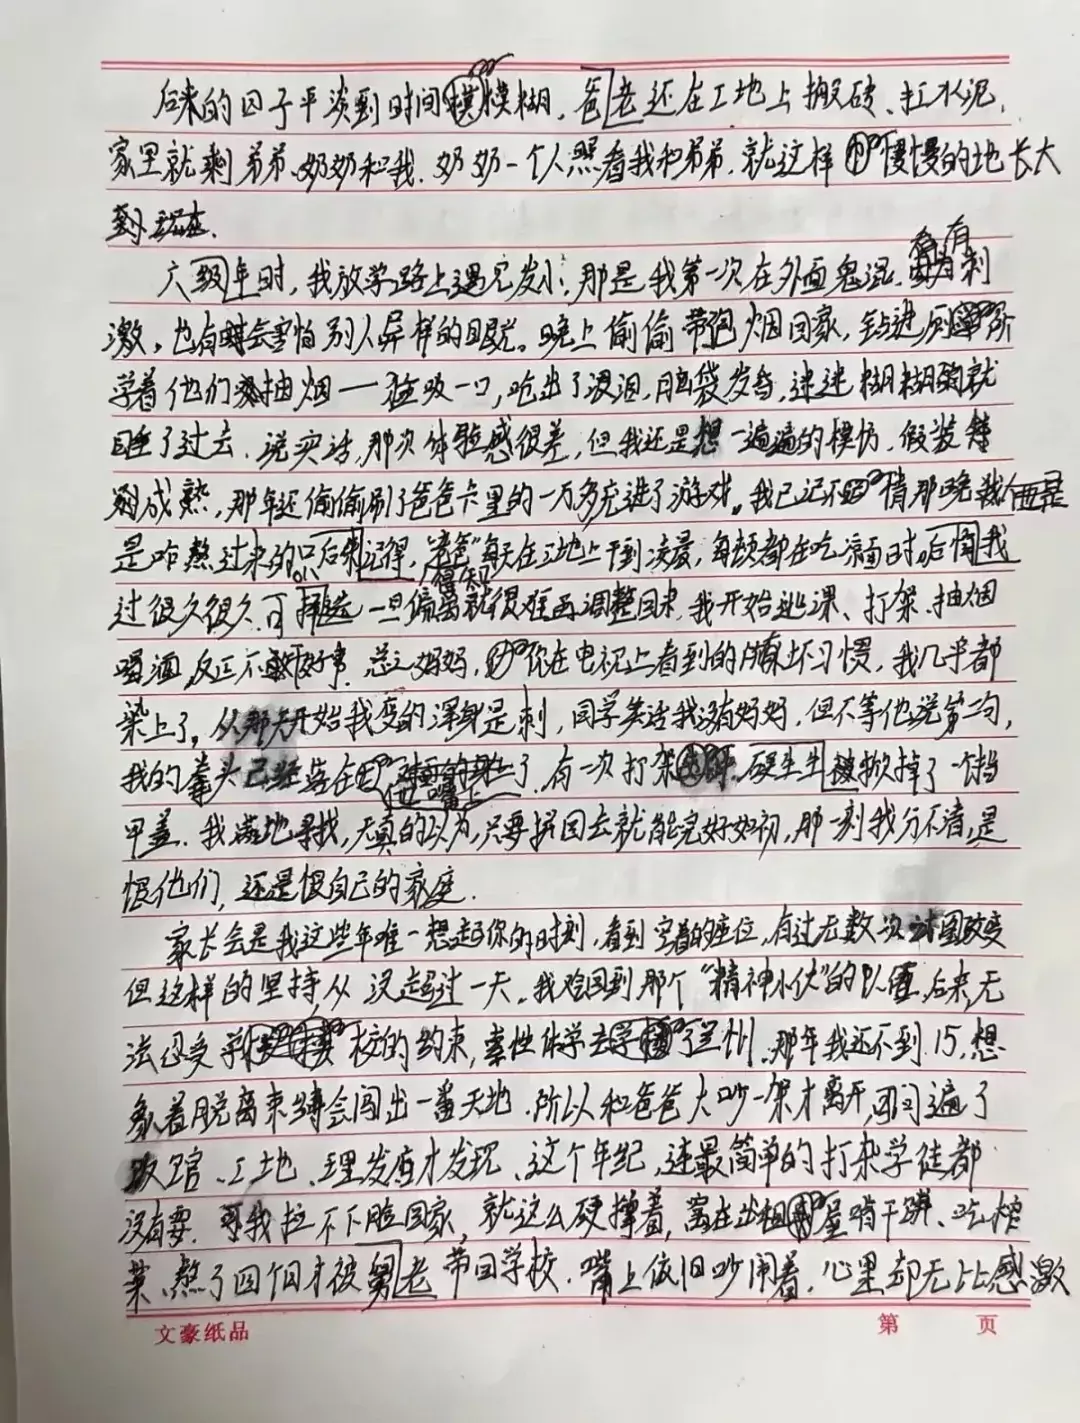 后来的日子平淡到时间模糊，爸老还在工地上搬砖、扛水泥，
家里就剩弟弟、奶奶和我，奶奶一个人照看我和弟弟，就这样慢慢的地长大
到现在。
六级年时，我放学路上遇见发小，那是我第一次在外面鬼混，有刺
激，也有时会害怕别人异样的眼光。晚上偷偷带包烟回家，钻进厕所
学着他们抽烟一猛吸一口，呛出了泪，脑袋发昏，迷迷糊糊就
睡了过去，说实话，那次体验感很差，但我还是想一遍遍的模仿，假装
成熟，那年还偷偷刷了爸爸卡里的一万多充进了游戏。我已记不清那晚
是咋熬过来的只后来记得，爸爸每天在工地上干到凌晨，每顿都在吃凉面时后悔我
得知
过很久很久，可一旦偏离就很难再调整回来，我开始逃课、打架、抽烟
喝酒，反正不干好事，总之妈妈，你在电视上看到的坏习惯，我几乎都
染上了。从那天开始我变的浑身是刺，同学笑话我没有妈妈，但不等他说第二句，
我的拳头已经落在他嘴上了，有一次打架，硬生生被掀掉了一个指
甲盖，我满地寻找，天真的以为，只要拼回去就能完好如初，那一刻我分不清，是
恨他们，还是恨自己的家庭。
家长会是我这些年唯一想起你的时刻，看到空着的座位，有过无数次试图改变
但这样的坚持，从没超过一天。我会回到那个“精神小伙”的队伍，后来，无
法忍受学校的约束，索性休学去了兰州，那年我还不到15，想
象着脱离束缚会闯出一番天地，所以和爸爸大吵一架才离开，可问遍了
饭馆、工地、理发店才发现，这个年纪，连最简单的打杂学徒都
没有要，可我拉不下脸回家，就这么硬撑着，窝在出租屋啃干饼、吃榨
菜，熬了四个月才被舅老带回学校，嘴上依旧吵闹着，心里却无比感激
文豪纸品
第 页